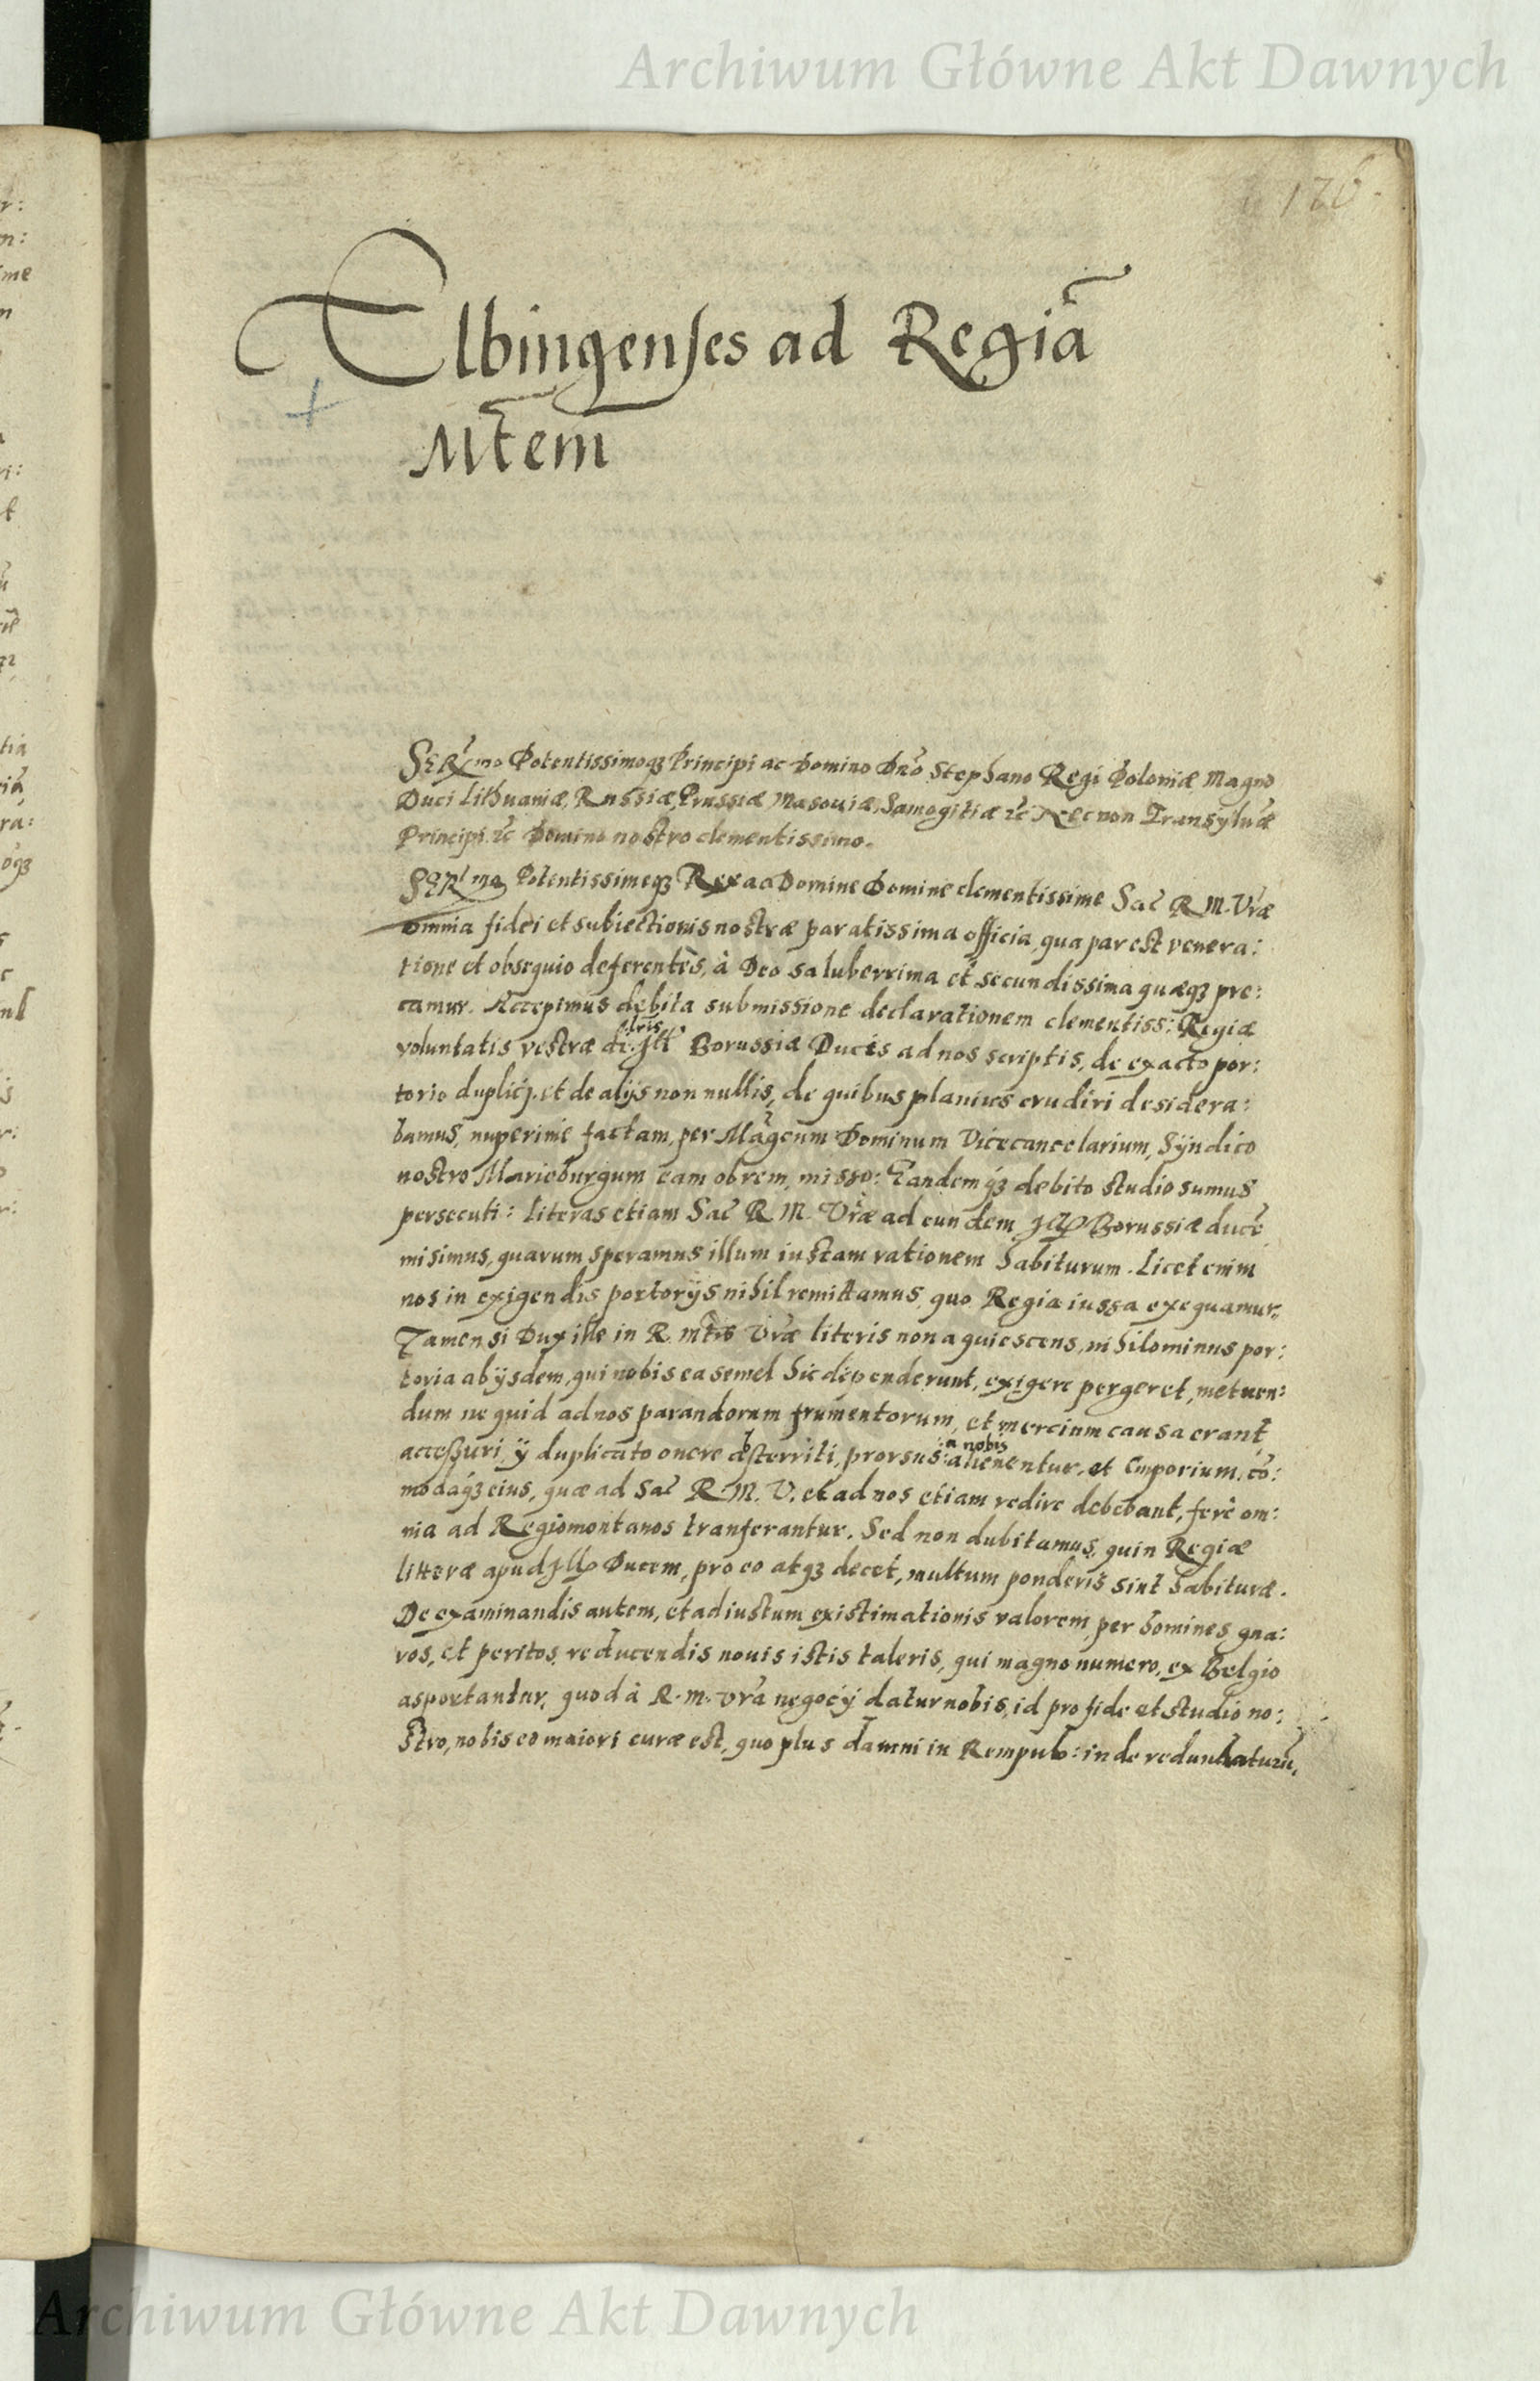 Archiwum Główne Akt Dawnych
126.
Elbingenses ad Regiã
Mtem
Sermo Potentissimoqȝ Principi ac Domino Dño Stephano Regi Poloniæ Magno
Duci Lithuaniæ, Russiæ, Prussiæ Masouiæ, Samogitiæ ⁊c̃ Necnon Transyluæ
Principi ⁊c̃ Domino nostro clementissimo.
Serme Potentissimeqȝ Rex ac Domine Domine clementissime Sac̃ R M. Vr̃æ
omnia fidei et subiectionis nostræ paratissima officia, qua par est venera:
tione et obsequio deferentes, à Deo saluberrima et secundissima quæqȝ pre:
camur. Accepimus debita submissione declarationem clementiss: Regiæ
voluntatis vestræ de ltris Illi Borussiæ Ducis ad nos scriptis, de exacto por:
torio duplicj. et de alijs non nullis, de quibus planius erudiri desidera:
bamus, nuperime factam, per Mag̃cum Dominum Vicecancelarium, Syndico
nostro Marieburgum eam obrem, misso: Eandemqȝ debito studio sumus
persecuti: literas etiam Sac̃ R M. Vr̃æ ad eundem Ill Borussiæ ducẽ
misimus, quarum speramus illum iustam rationem habiturum. Licet enim
nos in exigendis portorijs nihil remittamus, quo Regia iussa exequamur,
Tamen si Dux ille in R. Mtis Vr̃æ literis non aquiescens, nihilominus por:
toria ab ijsdem, qui nobis ea semel hic dependerunt, exigere pergeret, metuen:
dum ne quid ad nos parandorum frumentorum, et mercium causa erant
accessuri, ij duplicato onere desterriti, prorsus: a nobis alienentur. et Emporium, cõ:
modaqȝ eius, quæ ad Sac̃ R. M. V. et ad nos etiam redire debebant, fere om:
nia ad Regiomontanos tranferantur. Sed non dubitamus, quin Regiæ
litteræ apud Ill Ducem, pro eo atqȝ decet, multum ponderis sint habituræ.
De examinandis autem, et ad iustum existimationis valorem, per homines gna:
vos, et peritos, reducendis nouis istis taleris, qui magno numero, ex Belgio
asportantur, quod à R. M. Vr̃a negocij datur nobis, id pro fide et studio no:
stro, nobis eo maiori curæ est, quo plus damni in Rempub: inde redundaturũ,
Archiwum Główne Akt Dawnych